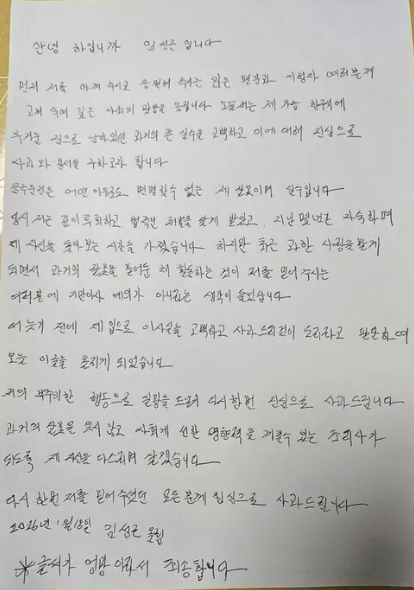 안녕 하십니까 임성근 입니다
먼저 저를 아껴 주시고 응원해 주시는 많은 팬분과 시청자 여러분께
고개 숙여 깊은 사죄의 말씀을 드립니다 오늘 저는 제 가슴 한구석에
무거운 짐으로 남아있던 과거의 큰 실수를 고백하고 이에 대해 진심으로
사과와 용서를 구하고자 합니다
음주운전은 어떤 이유로도 변명할수 없는 제 잘못이며 실수입니다
당시 저는 깊이 후회하고 법적인 처벌을 달게 받았고, 지난 몇년간 자숙하며
제 자신을 돌아보는 시간을 가졌습니다 하지만 최근 과한 사랑을 받게
되면서 과거의 잘못을 묻어둔 채 활동하는 것이 저를 믿어주시는
여러분께 기만이자 예의가 아니라는 생각이 들었습니다
더 늦기 전에 제 입으로 이 사실을 고백하고 사과드리는 것이 도리라고 판단하여
오늘 이 글을 올리게 되었습니다
저의 부주의한 행동으로 실망을 드려 다시 한번 진심으로 사과 드립니다
과거의 잘못을 잊지 않고 사회에 선한 영향력을 끼칠수 있는 조리사가
되도록 제 자신을 다스리며 살겠습니다
다시 한번 저를 믿어 주셨던 모든분께 진심으로 사과드립니다
2026년 1월 18일 임성근 올림
*글씨가 엉망 이라서 죄송합니다